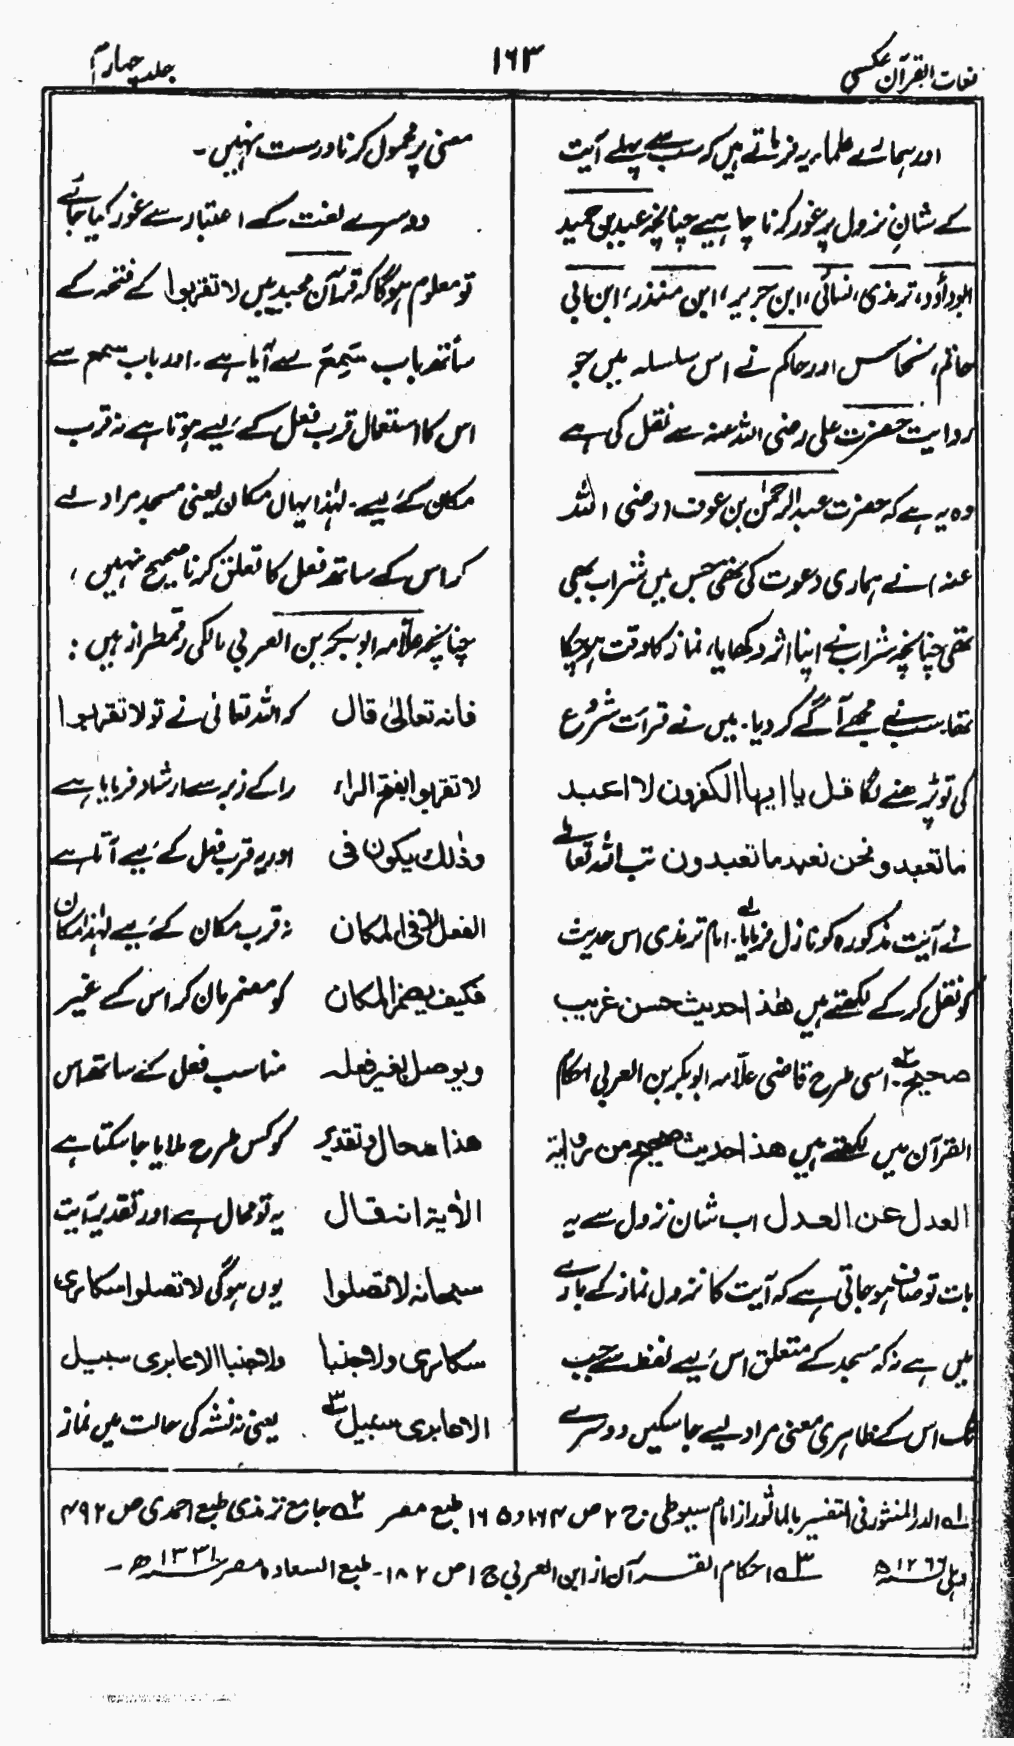 لغات القرآن عکسی
۱۶۳
جلد چہارم
اور ہمارے علماء یہ فرماتے ہیں کہ سب سے پہلے آیت
کے شانِ نزول پر غور کرنا چاہیے چنانچہ عبد بن حمید
ابوداؤد، ترمذی، نسائی، ابن جریر، ابن منذر، ابن ابی
حاتم، نحاس اور حاکم نے اس سلسلہ میں جو
روایت حضرت علی رضی اللہ عنہ سے نقل کی ہے
وہ یہ ہے کہ حضرت عبد الرحمٰن بن عوف (رضی اللہ
عنہ) نے ہماری دعوت کی تھی جس میں شراب بھی
تھی چنانچہ شراب نے اپنا اثر دکھایا، نماز کا وقت ہو چکا
تھا۔ سب نے مجھے آگے کر دیا۔ میں نے قرأت شروع
کی تو پڑھنے لگا قل یا ایها الکفرون لا اعبد
ما تعبدو ونحن نعبد ما تعبدون تب اللہ تعالےٰ
نے آیت مذکورہ کو نازل فرمایا۔ ۱ امام ترمذی اس حدیث
کو نقل کر کے لکھتے ہیں هٰذا حدیث حسن غریب
صحیح۔ ۲ اسی طرح قاضی علامہ ابوبکر بن العربی احکام
القرآن میں لکھتے ہیں هذا حدیث صحیح من روایة
العدل عن العدل اب شان نزول سے یہ
بات تو صاف ہو جاتی ہے کہ آیت کا نزول نماز کے بارے
میں ہے نہ کہ مسجد کے متعلق اس لیے لفظ سے جب
تک اس کے ظاہری معنی مراد لیے جا سکیں دوسرے
معنی پر محمول کرنا درست نہیں۔
دوسرے لغت کے اعتبار سے غور کیا جائے
تو معلوم ہوگا کہ قرآن مجید میں لا تقربوا کے فتحہ کے
ساتھ باب سَمِعَ سے آیا ہے۔ اور باب سمع سے
اس کا استعمال قرب فعل کے لیے ہوتا ہے نہ قرب
مکان کے لیے۔ لہٰذا یہاں مکان یعنی مسجد مراد لے
کر اس کے ساتھ فعل کا تعلق کرنا صحیح نہیں،
چنانچہ علامہ ابوبکر بن العربی مالکی رقمطراز ہیں:
فانه تعالیٰ قال کہ اللہ تعالیٰ نے تو لا تقربوا
لا تقربوا بفتح الراء را کے زبر سے ارشاد فرمایا ہے
وذٰلك یکون فی اور یہ قرب فعل کے لیے آتا ہے
الفعل لا فی المکان نہ قرب مکان کے لیے لہٰذا مکان
فکیف یضمر المکان کو مضمر مان کر اس کے غیر
ویوصل بغیر فعله مناسب فعل کے ساتھ اس
هذا محال وتقدیر کو کس طرح ملایا جا سکتا ہے
الاٰیة انه قال یہ تو محال ہے اور تقدیر آیت
سبحانه لا تصلوا یوں ہوگی لا تصلوا سکاریٰ
سکارٰی ولا جنبا ولا جنبا الا عابری سبیل
الا عابری سبیل ۳ یعنی نہ نشہ کی حالت میں نماز
۱ الدر المنثور فی التفسیر بالماثور از امام سیوطی ج ۲ ص ۱۶۴ و ۱۶۵ طبع مصر ۲ جامع ترمذی طبع احمدی ص ۴۹۲
دہلی ۱۲۶۶ ھ ۳ احکام القرآن از ابن العربی ج ۱ ص ۱۸۲۔ طبع السعادہ مصر ۱۳۳۱ ھ۔